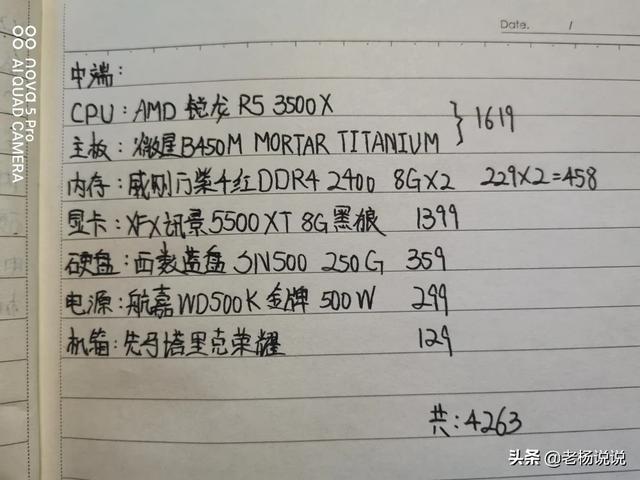 Date. /
中端:
CPU:AMD 锐龙 R5 3500X
主板:微星B450M MORTAR TITANIUM } 1619
内存:威刚万紫千红DDR4 2400 8G×2 229×2=458
显卡:XFX讯景5500XT 8G黑狼 1399
硬盘:西数蓝盘 SN500 250G 359
电源:航嘉WD500K金牌 500W 299
机箱:先马塔里克荣耀 129
共:4263
nova 5 Pro
AI QUAD CAMERA
头条 @老杨说说